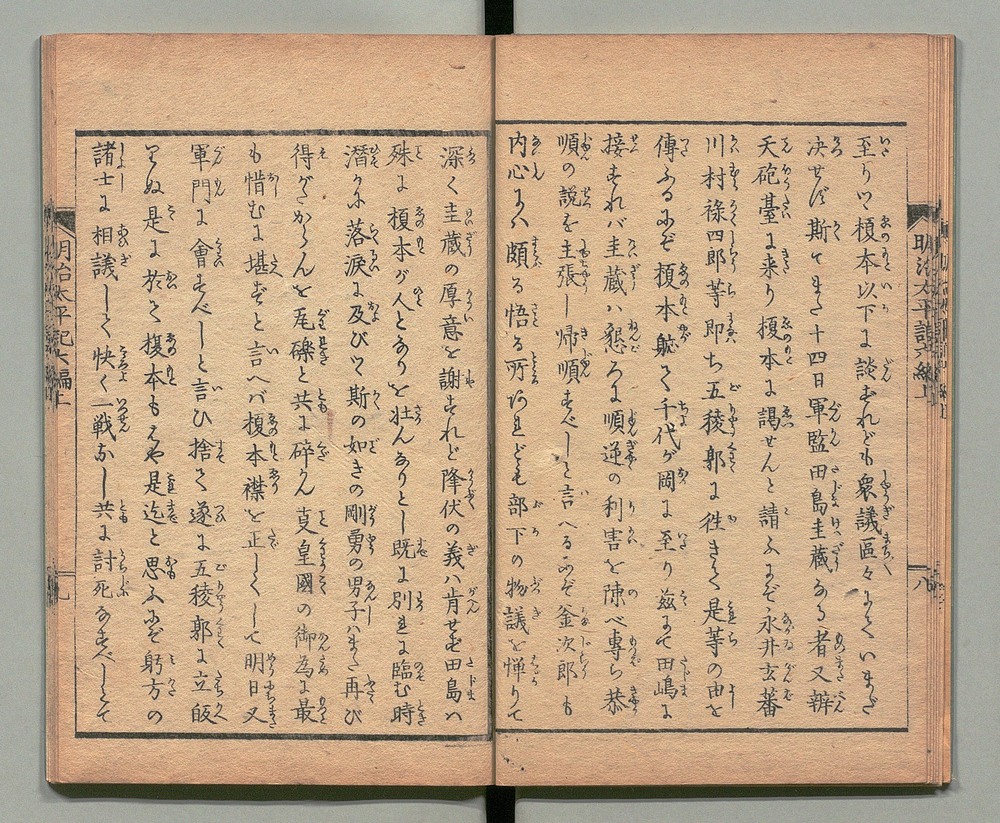 至りつ榎本以下に談ずれども衆議區々にていまだ
决せず斯てまた十四日軍監田島圭蔵なる者又辨
天砲臺に来り榎本に謁せんと請ふにぞ永井玄蕃
川村祿四郎等即ち五稜郭に徃きて是等の由を
傳ふるにぞ榎本艈て千代が岡に至り茲にて田嶋に
接すれバ圭蔵ハ懇ろに順逆の利害を陳べ専ら恭
順の説を主張し帰順すべしと言へるにぞ釜次郎も
内心にハ頗る悟る所あれども部下の物議を憚りて
深く圭蔵の厚意を謝すれど降伏の義ハ肯せず田島ハ
殊に榎本が人となりを壮んなりとし既に別れに臨む時
潜かに落涙に及びつ斯の如きの剛勇の男子ハまた再び
得がたからんを瓦礫と共に碎かん眞皇國の御為に最
も惜むに堪ずと言へバ榎本襟を正しくして明日又
軍門に會すべしと言ひ捨て遂に五稜郭に立皈
りぬ是に於て榎本もはや是迄と思ふにぞ躬方の
諸士に相議して快く一戦なし共に討死なすべしとて
明治太平記六編上
八
明治太平記六編上